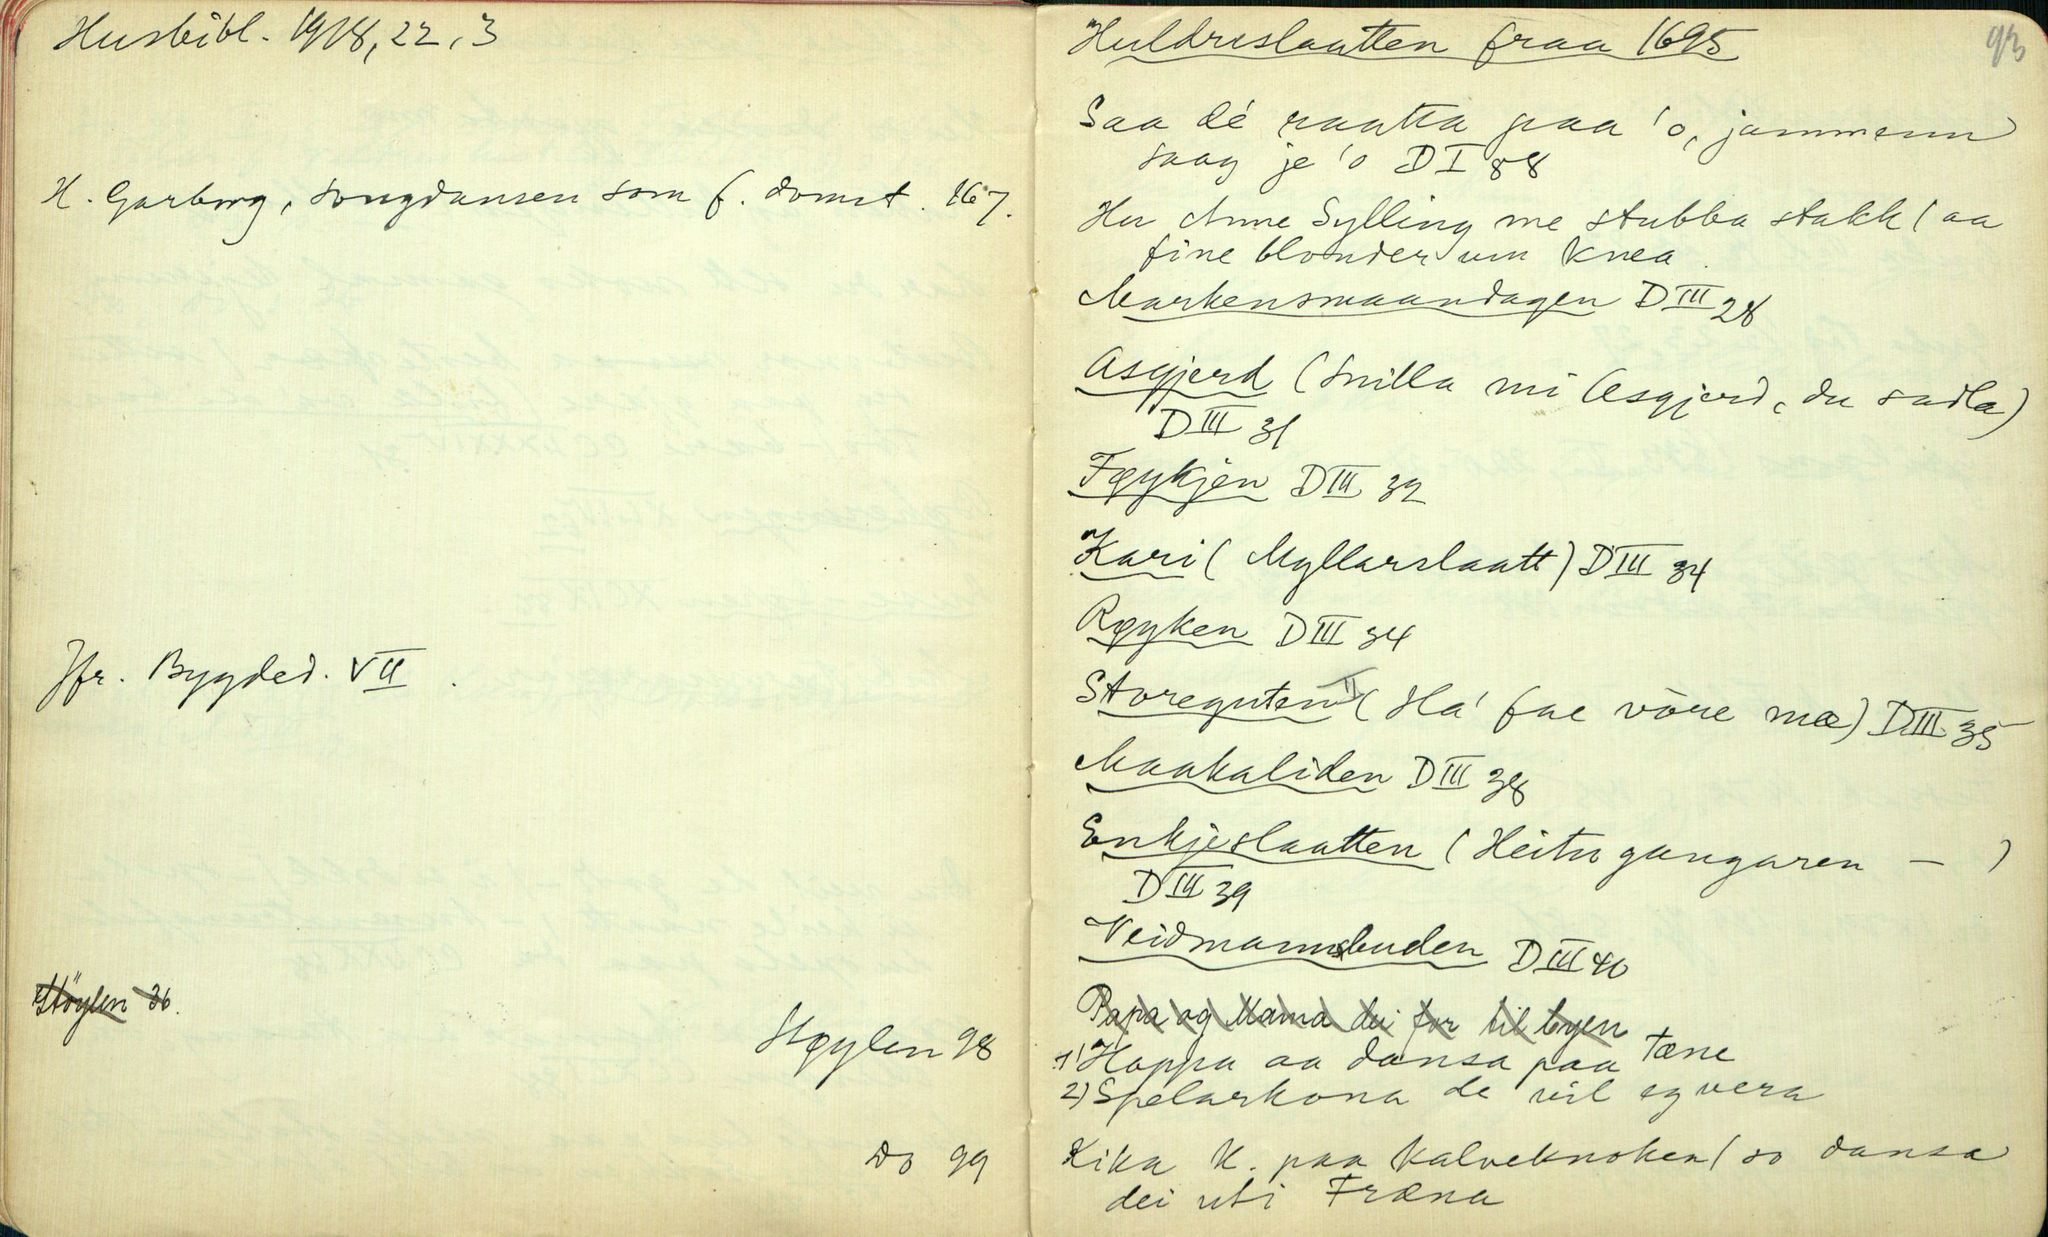 Husbibl. 1918, 22, 3
H. Garborg, songdansen som f. domst. 167.
Jfr. Bygded. VII.
Støylen 36.
Støylen 98
Do 99
93
Huldreslaatten fraa 1695
Saa dé raatta paa 'o, jammenn
saag je 'o D I 88
Hu Anne Sylling me stubba stakk / aa
fine blonder um knea
Markensmaandagen D III 28
Asgjerd (Snilla mi Asgjerd, du sadla)
D III 31
Føykjen D III 32
Kari (Myllarslaatt) D III 34
Røyken D III 34
Storeguten (Ha' fae vòre mæ) D III 35
Maakaliden D III 38
Enkjeslaatten (Heiter gangaren – )
D III 39
Veidmannsbuden D III 40
Papa og Mama dei for til byen
1) Hoppa aa dansa paa tæne
2) Spelarkona de vil eg vera
Kika K. paa kalveknoken / so dansa
dei uti Fræna